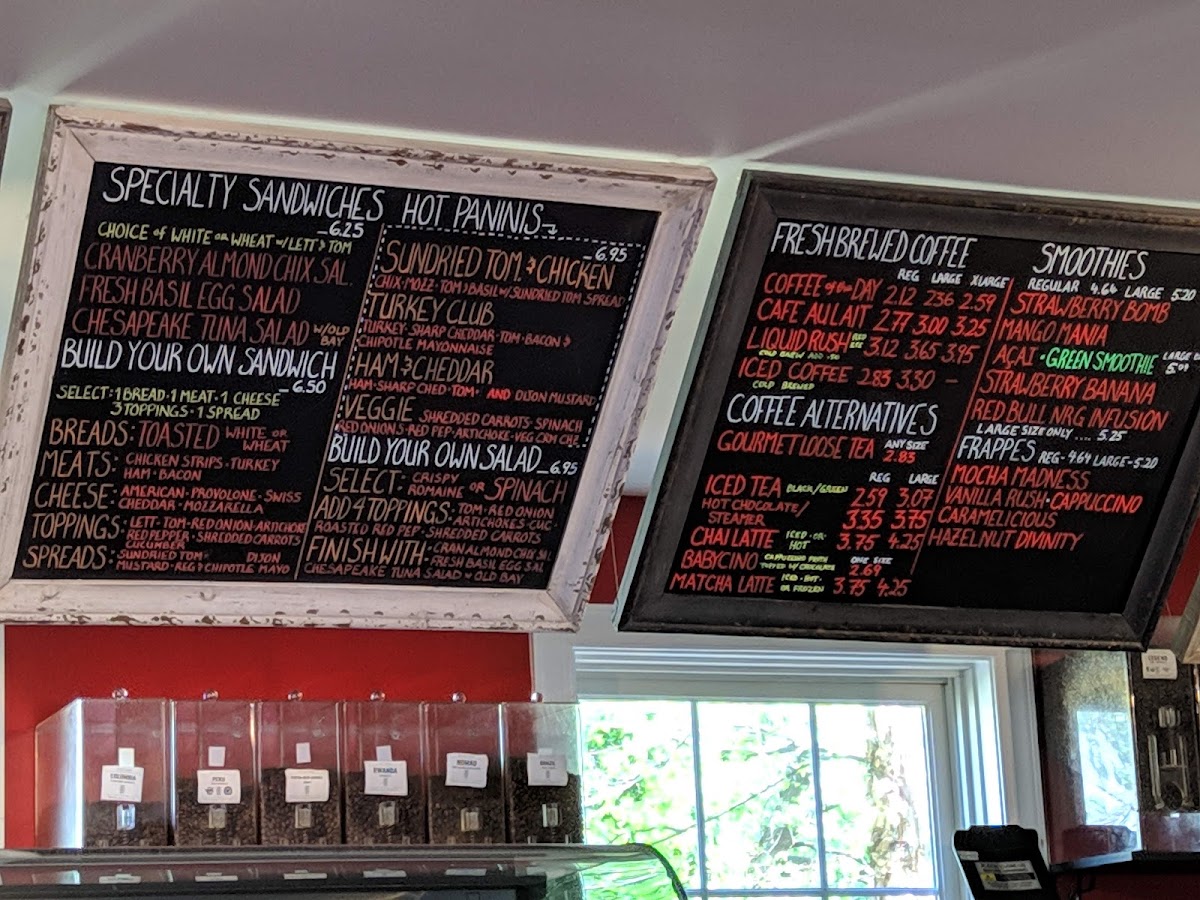 SPECIALTY SANDWICHES
6.25
CHOICE of WHITE OR WHEAT w/LETT & TOM
CRANBERRY ALMOND CHIX SAL.
FRESH BASIL EGG SALAD
CHESAPEAKE TUNA SALAD W/OLD BAY
BUILD YOUR OWN SANDWICH
6.50
SELECT: 1 BREAD · 1 MEAT · 1 CHEESE
3 TOPPINGS · 1 SPREAD
BREADS: TOASTED WHITE OR WHEAT
MEATS: CHICKEN STRIPS · TURKEY
HAM · BACON
CHEESE: AMERICAN · PROVOLONE · SWISS
CHEDDAR · MOZZARELLA
TOPPINGS: LETT · TOM · RED ONION · ARTICHOKE
RED PEPPER · SHREDDED CARROTS
CUCUMBER
SPREADS: SUNDRIED TOM · DIJON
MUSTARD · REG & CHIPOTLE MAYO
HOT PANINIS
6.95
SUNDRIED TOM. & CHICKEN
CHIX · MOZZ · TOM & BASIL W/ SUNDRIED TOM SPREAD
TURKEY CLUB
TURKEY · SHARP CHEDDAR · TOM · BACON &
CHIPOTLE MAYONNAISE
HAM & CHEDDAR
HAM · SHARP CHED · TOM · AND DIJON MUSTARD
VEGGIE SHREDDED CARROTS · SPINACH
RED ONIONS · RED PEP · ARTICHOKE · VEG CRM CHZ
BUILD YOUR OWN SALAD 6.95
SELECT: CRISPY ROMAINE OR SPINACH
ADD 4 TOPPINGS: TOM · RED ONION
ARTICHOKES · CUC ·
ROASTED RED PEP · SHREDDED CARROTS
FINISH WITH: CRAN ALMOND CHIX SAL
FRESH BASIL EGG SAL
CHESAPEAKE TUNA SALAD W OLD BAY
FRESH BREWED COFFEE
REG LARGE XLARGE
COFFEE of the DAY 2.12 2.36 2.59
CAFE AU LAIT 2.77 3.00 3.25
LIQUID RUSH RED EYE 3.12 3.65 3.95
COLD BREW ADD .50
ICED COFFEE 2.83 3.30 -
COLD BREWED
COFFEE ALTERNATIVES
GOURMET LOOSE TEA ANY SIZE 2.83
REG LARGE
ICED TEA BLACK/GREEN 2.59 3.07
HOT CHOCOLATE/
STEAMER 3.35 3.75
CHAI LATTE ICED · OR · HOT 3.75 4.25
BABYCINO CAPPUCCINO FROTH TOPPED W/ CHOCOLATE ONE SIZE 2.69
MATCHA LATTE ICED · HOT · OR FROZEN 3.75 4.25
SMOOTHIES
REGULAR 4.64 LARGE 5.20
STRAWBERRY BOMB
MANGO MANIA
AÇAI · GREEN SMOOTHIE
STRAWBERRY BANANA
RED BULL NRG INFUSION
LARGE SIZE ONLY .... 5.25
FRAPPES REG - 4.64 LARGE - 5.20
MOCHA MADNESS
VANILLA RUSH · CAPPUCCINO
CARAMELICIOUS
HAZELNUT DIVINITY
COLOMBIA
PERU
RWANDA